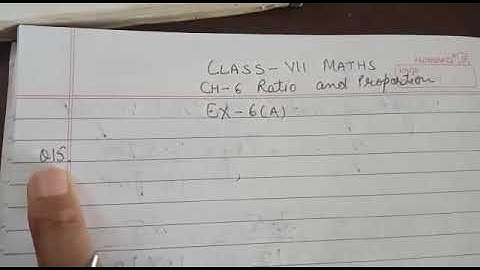 CLASS - VII MATHS
CH-6 Ratio and Proportion
EX - 6(A)
Q15